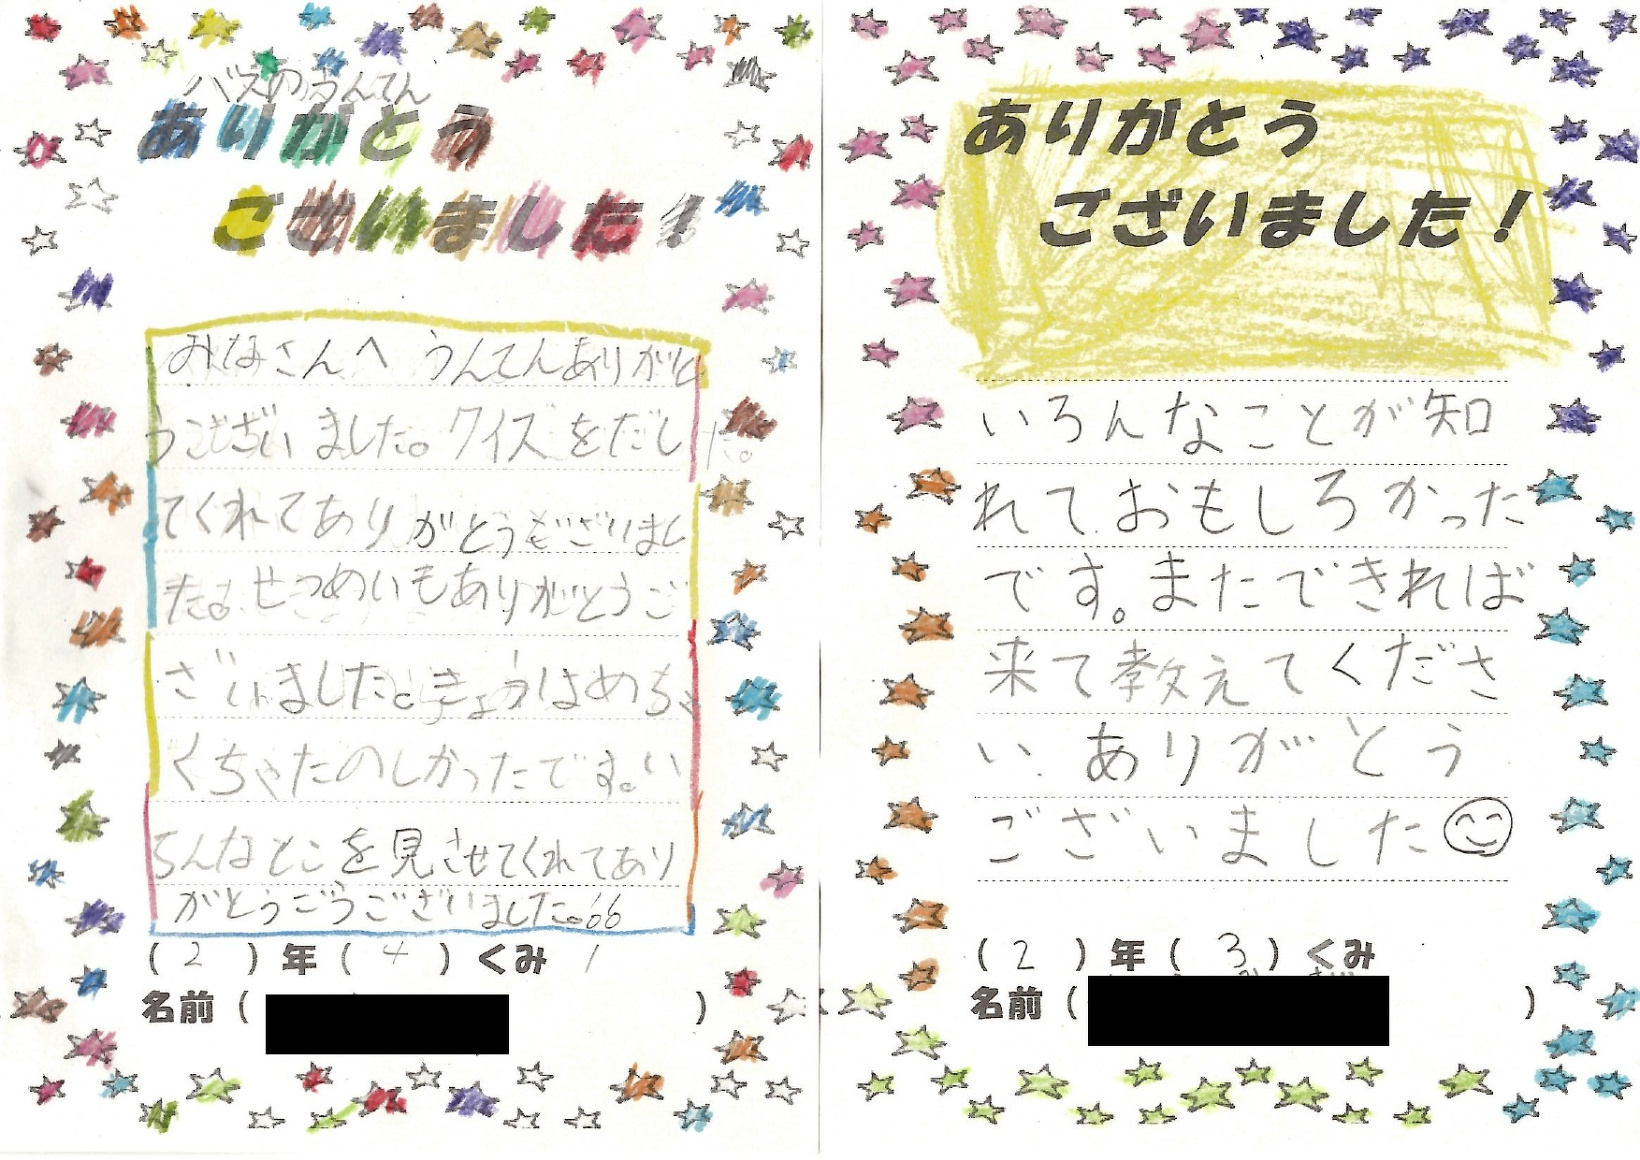 バスのうんてん
ありがとう
ございました!
みなさんへ うんてんありがと
うございました。クイズをだし
てくれてありがとうもございまし
た。せつめいもありがとうご
ざいました。きょうはめちゃ
くちゃたのしかったです。い
ろんなとこを見させてくれてあり
がとうごうございました。
(2)年(4)くみ
名前( )
ありがとう
ございました!
いろんなことが知
れて、おもしろかった
です。またできれば
来て教えてくださ
い、ありがとう
ございました
(2)年(3)くみ
名前( )